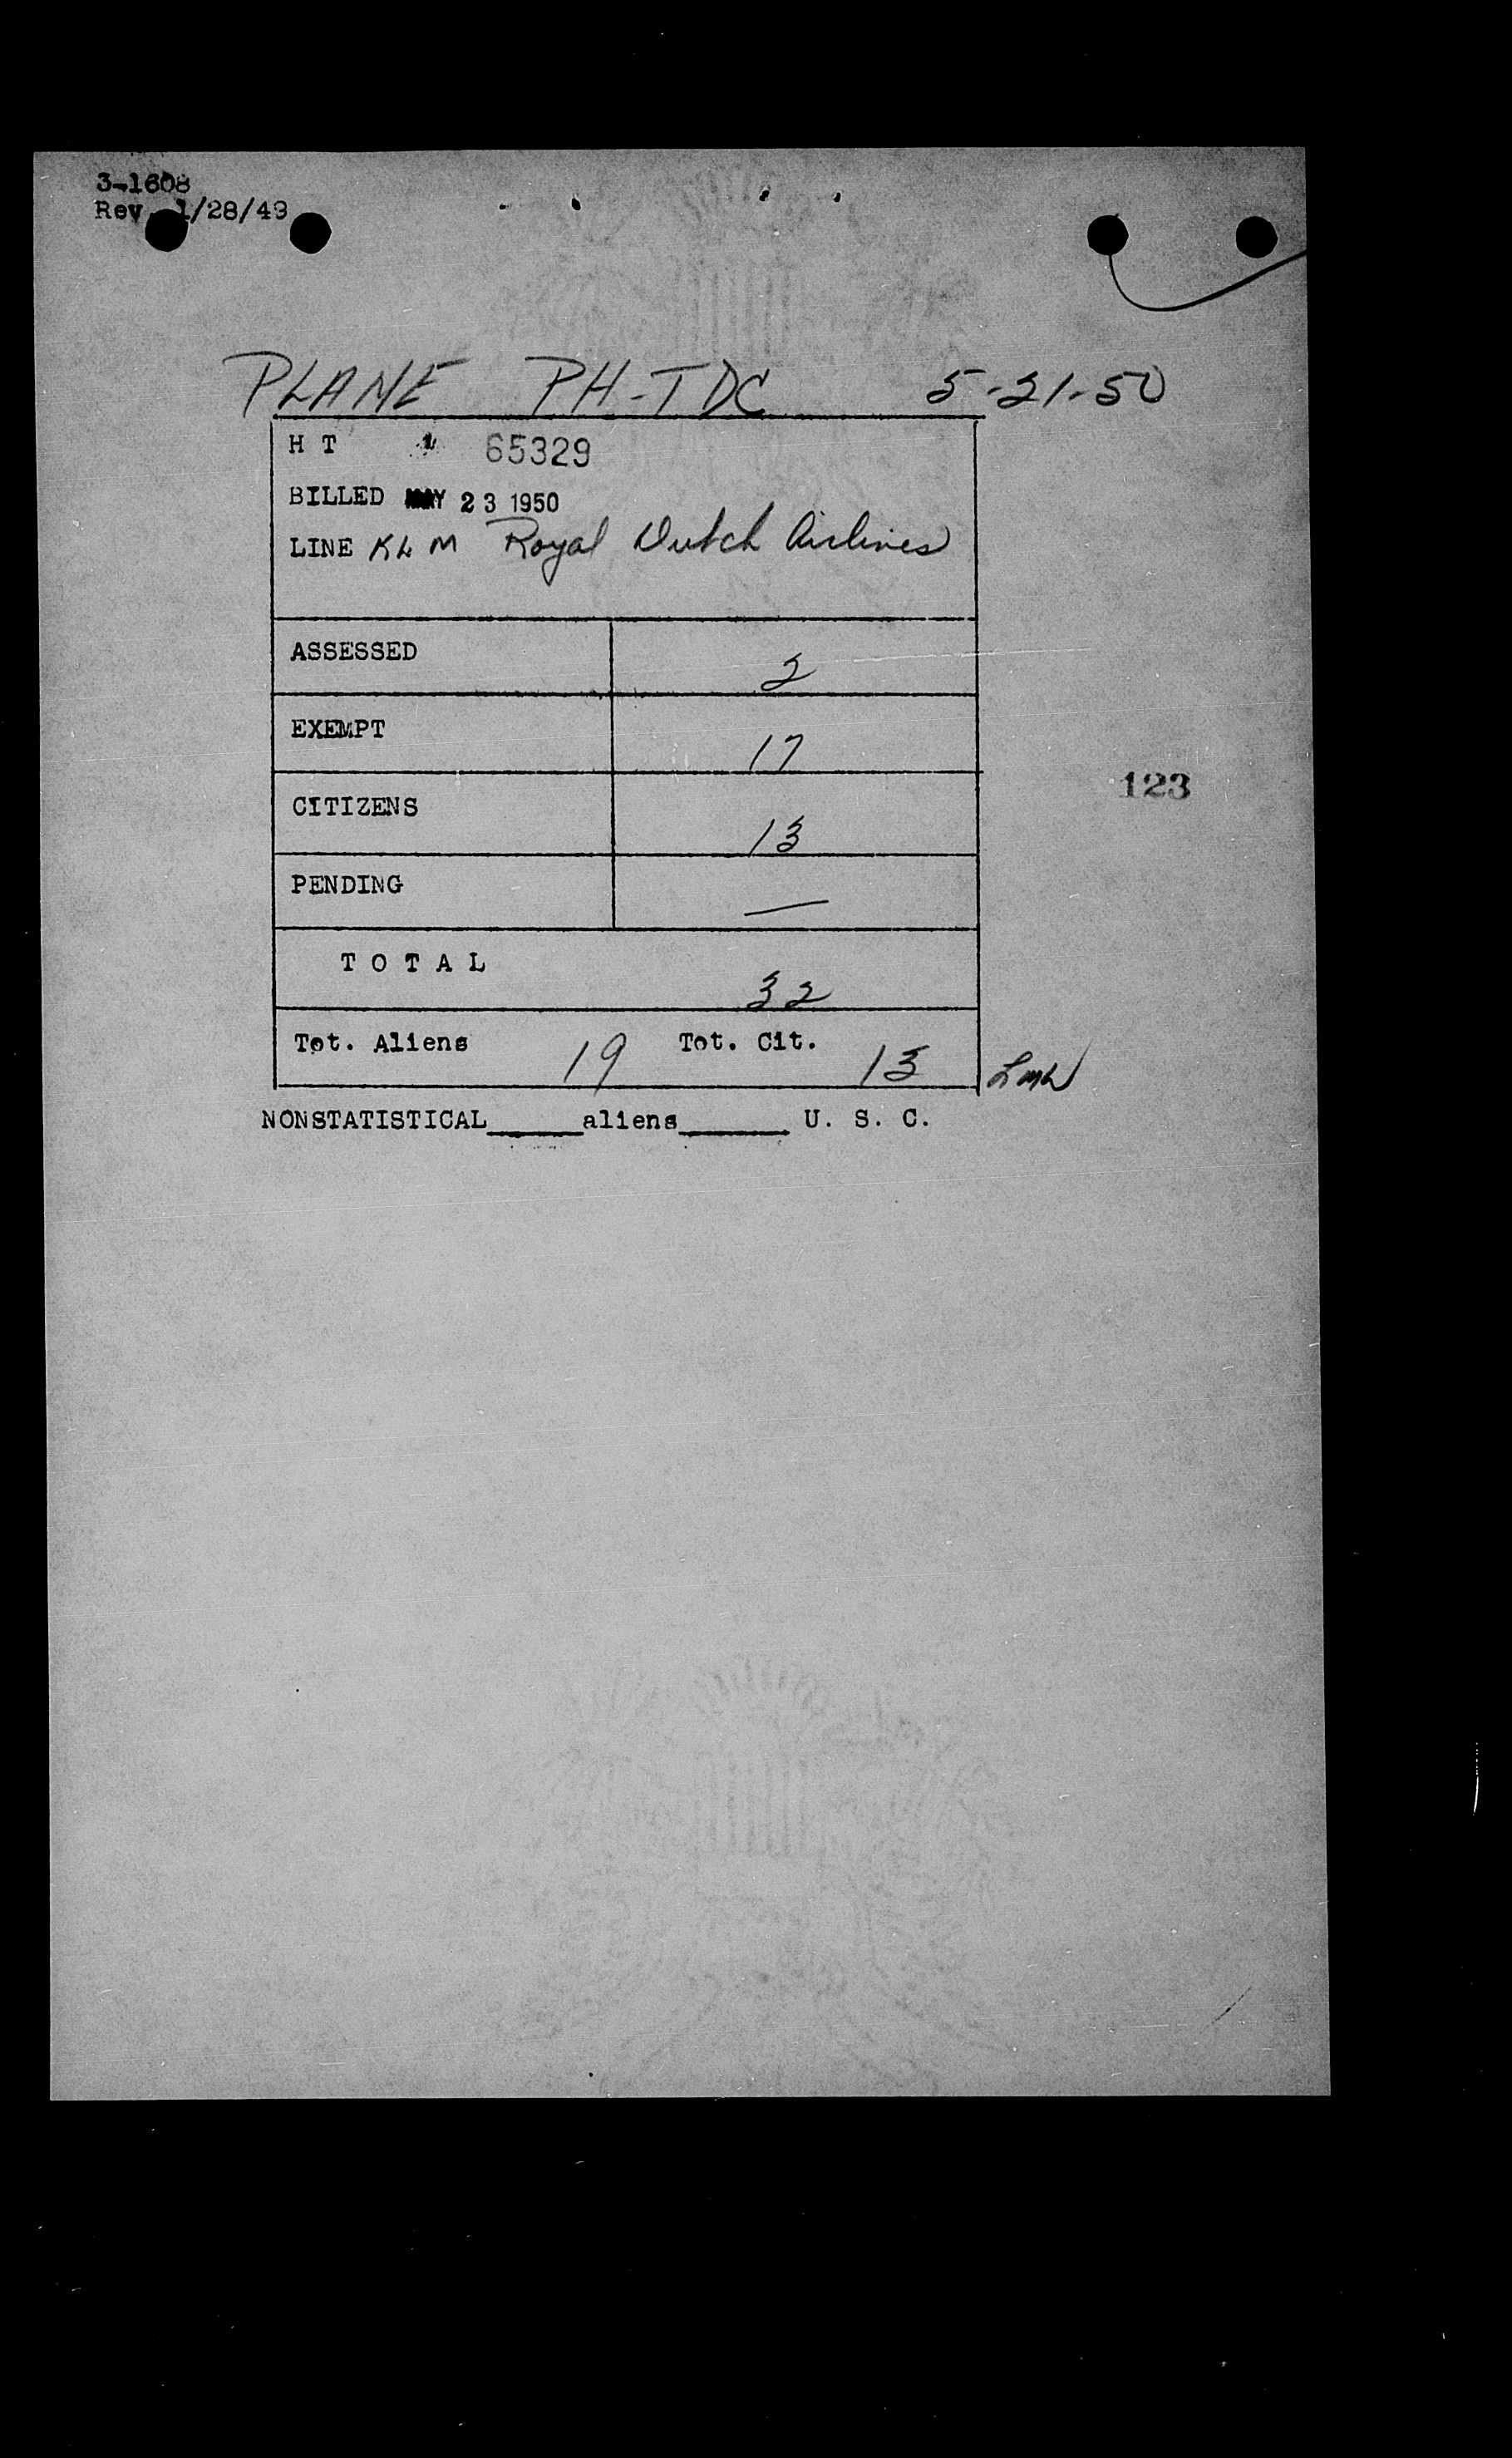 3-1608
Rev. 1/28/49
PLANE PH-TDC 5-21-50
H T 65329
BILLED MAY 23 1950
LINE KLM Royal Dutch Airlines
ASSESSED 2
EXEMPT 17
123
CITIZENS 13
PENDING —
T O T A L 32
Tot. Aliens 19 Tot. Cit. 13
NONSTATISTICAL______aliens_______ U. S. C.